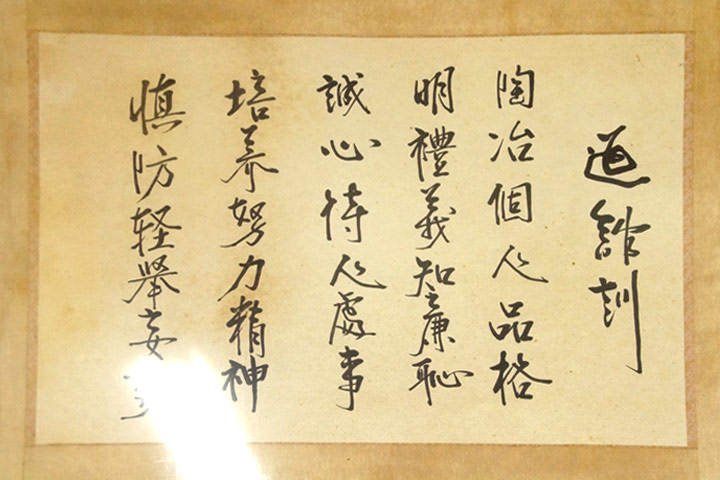 道館訓
陶冶個人品格
明禮義知廉恥
誠心待人處事
培养努力精神
慎防轻舉妄